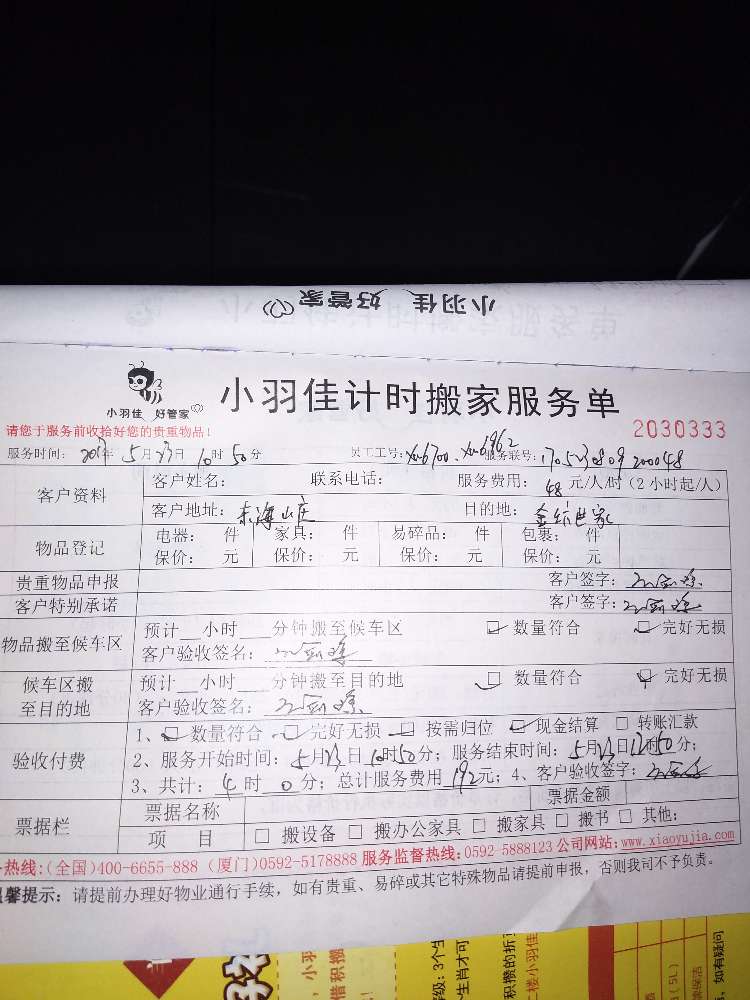 小羽佳 好管家
小羽佳 好管家
小羽佳计时搬家服务单
2030333
请您于服务前收拾好您的贵重物品!
服务时间: 2017年 5月23日 10时50分 员工工号: xu6700. xu6962 服务联号: 170523080920048
客户资料
客户姓名: 联系电话: 服务费用: 48 元/人/时(2小时起/人)
客户地址: 东海山庄 目的地: 金纺世家
物品登记
电器: 件 家具: 件 易碎品: 件 包裹: 件
保价: 元 保价: 元 保价: 元 保价: 元
贵重物品申报 客户签字:
客户特别承诺 客户签字:
物品搬至候车区
预计__小时__分钟搬至候车区 □ 数量符合 □ 完好无损
客户验收签名:
候车区搬至目的地
预计__小时__分钟搬至目的地 □ 数量符合 □ 完好无损
客户验收签名:
验收付费
1、□ 数量符合 □ 完好无损 □ 按需归位 □ 现金结算 □ 转账汇款
2、服务开始时间: 5月23日10时50分; 服务结束时间: 5月23日12时50分;
3、共计: 4 时 0 分; 总计服务费用 192元; 4、客户验收签字:
票据栏
票据名称 票据金额
项 目 □ 搬设备 □ 搬办公家具 □ 搬家具 □ 搬书 □ 其他:
热线:(全国)400-6655-888 (厦门)0592-5178888 服务监督热线:0592-5888123 公司网站:www.xiaoyujia.com
馨提示: 请提前办理好物业通行手续, 如有贵重、易碎或其它特殊物品请提前申报, 否则我司不予负责。